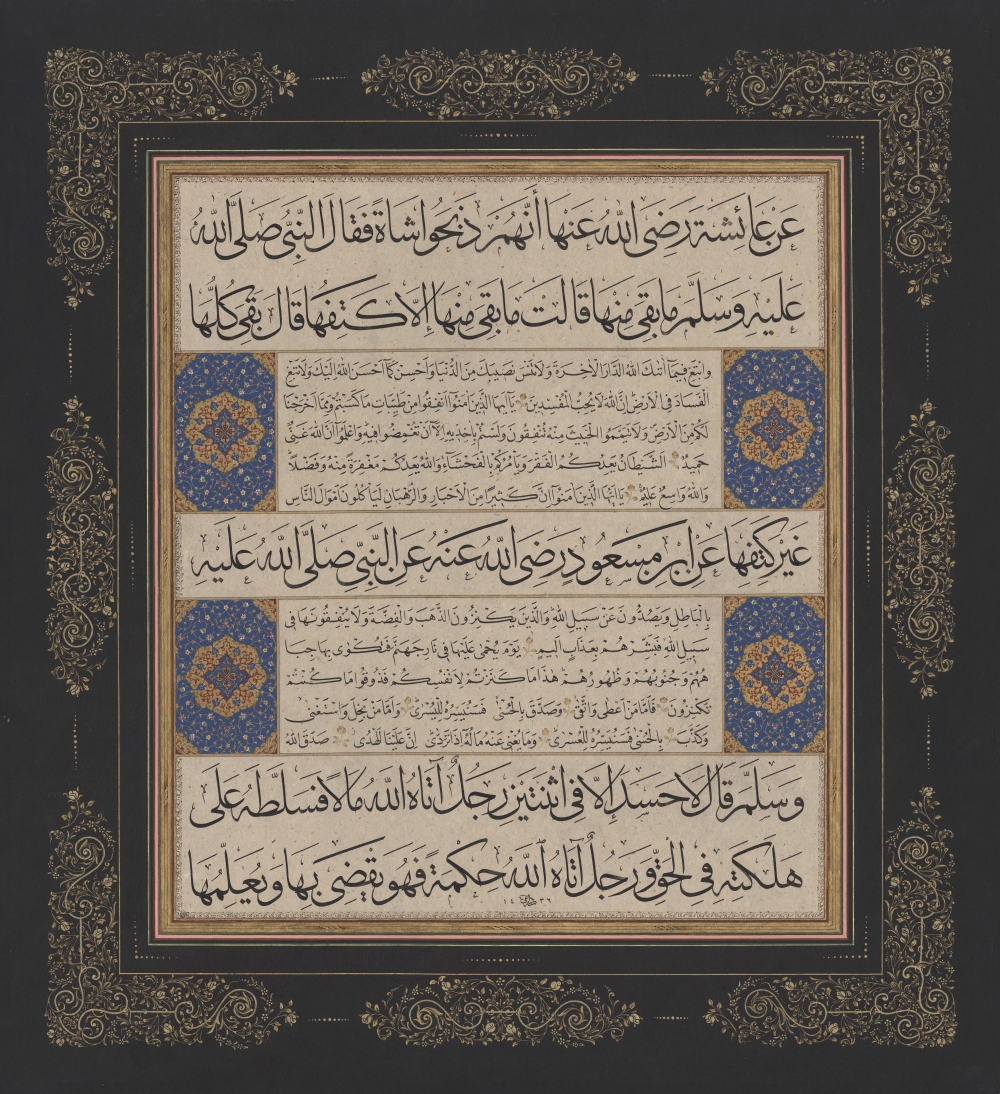 عن عائشة رضي الله عنها أنهم ذبحوا شاة فقال النبي صلى الله
عليه وسلم ما بقي منها قالت ما بقي منها إلا كتفها قال بقي كلها
وابتغ فيما آتىك الله الدار الآخرة ولا تنس نصيبك من الدنيا وأحسن كما أحسن الله إليك ولا تبغ
الفساد في الأرض إن الله لا يحب المفسدين يا أيها الذين آمنوا أنفقوا من طيبات ما كسبتم ومما أخرجنا
لكم من الأرض ولا تيمموا الخبيث منه تنفقون ولستم بآخذيه إلا أن تغمضوا فيه واعلموا أن الله غني
حميد الشيطان يعدكم الفقر ويأمركم بالفحشاء والله يعدكم مغفرة منه وفضلا
والله واسع عليم يا أيها الذين آمنوا إن كثيرا من الأحبار والرهبان ليأكلون أموال الناس
غير كتفها عن ابن مسعود رضي الله عنه عن النبي صلى الله عليه
بالباطل ويصدون عن سبيل الله والذين يكنزون الذهب والفضة ولا ينفقونها في
سبيل الله فبشرهم بعذاب أليم يوم يحمى عليها في نار جهنم فتكوى بها جبا
ههم وجنوبهم وظهورهم هذا ما كنزتم لأنفسكم فذوقوا ما كنتم
تكنزون فأما من أعطى واتقى وصدق بالحسنى فسنيسره لليسرى وأما من بخل واستغنى
وكذب بالحسنى فسنيسره للعسرى وما يغني عنه ماله إذا تردى إن علينا للهدى صدق الله
وسلم قال لا حسد إلا في اثنتين رجل آتاه الله مالا فسلطه على
هلكته في الحق ورجل آتاه الله حكمة فهو يقضي بها ويعلمها
١٤٣٦